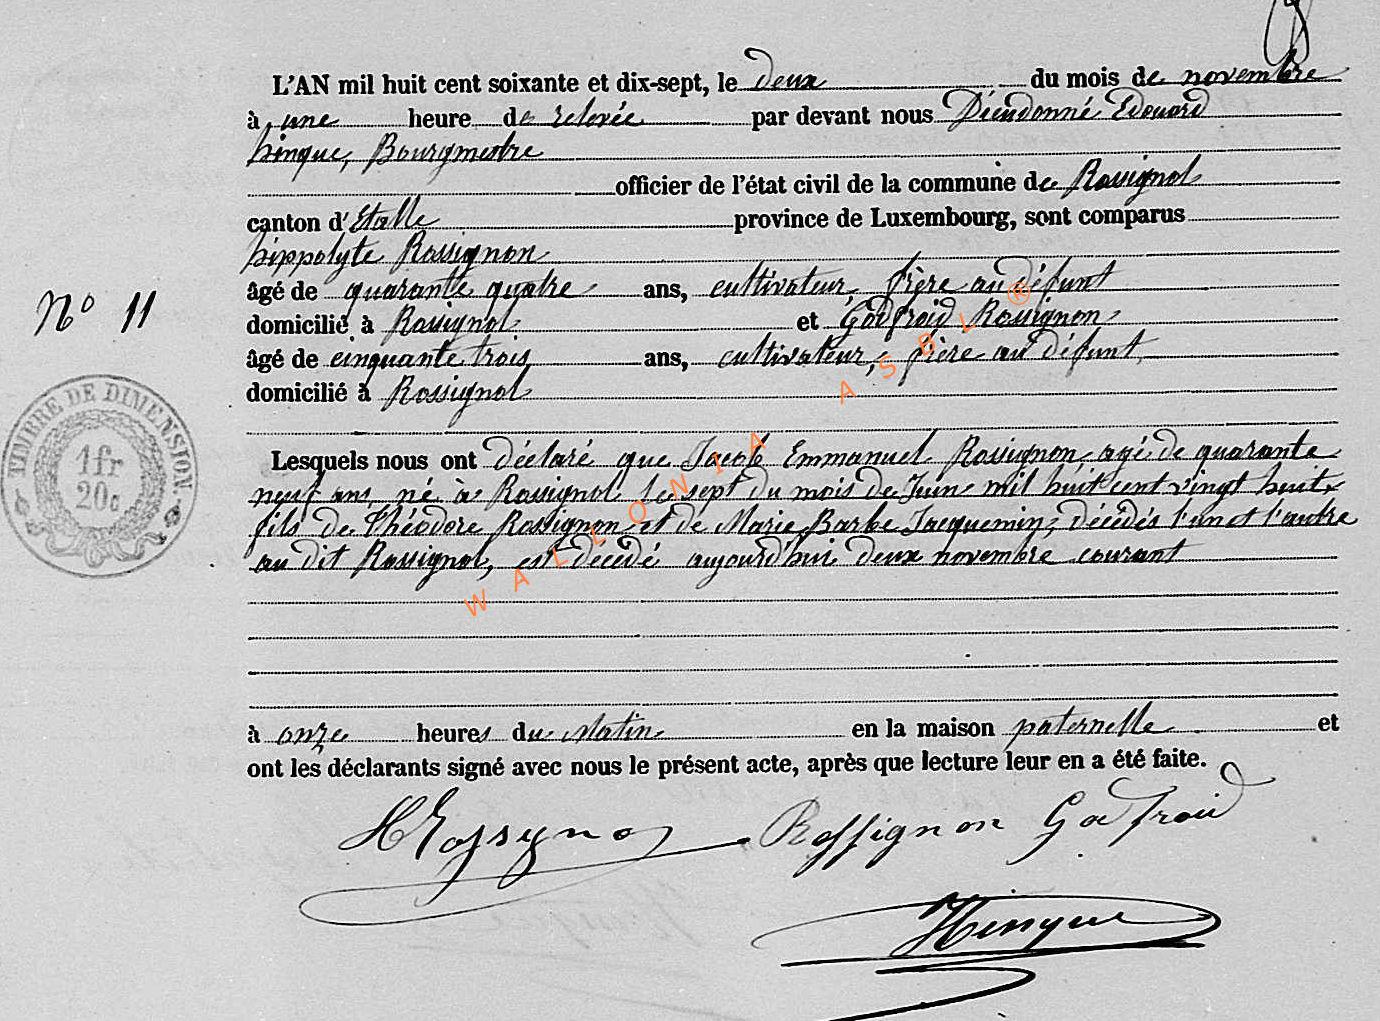 L'AN mil huit cent soixante et dix-sept, le deux du mois de novembre
à une heure de relevée par devant nous Dieudonné Edouard
hinque, Bourgmestre
officier de l'état civil de la commune de Rossignol
canton d'Etalle province de Luxembourg, sont comparus
hippolyte Rossignon
âgé de quarante quatre ans, cultivateur, frère au défunt
domicilié à Rossignol et Godfroid Rossignon
âgé de cinquante trois ans, cultivateur, frère au défunt
domicilié à Rossignol
N° 11
TIMBRE DE DIMENSION.
1 fr
20c
Lesquels nous ont déclaré que Jacob Emmanuel Rossignon agé de quarante
neuf ans, né à Rossignol le sept du mois de Juin mil huit cent vingt huit,
fils de Théodore Rossignon et de Marie Barbe Jacquemin, décédés l'un et l'autre
au dit Rossignol, est décédé aujourd'hui deux novembre courant
à onze heures du Matin en la maison paternelle et
ont les déclarants signé avec nous le présent acte, après que lecture leur en a été faite.
H Rossignon Rossignon Godfroid
Hinque
WALLONIA ASBL ®